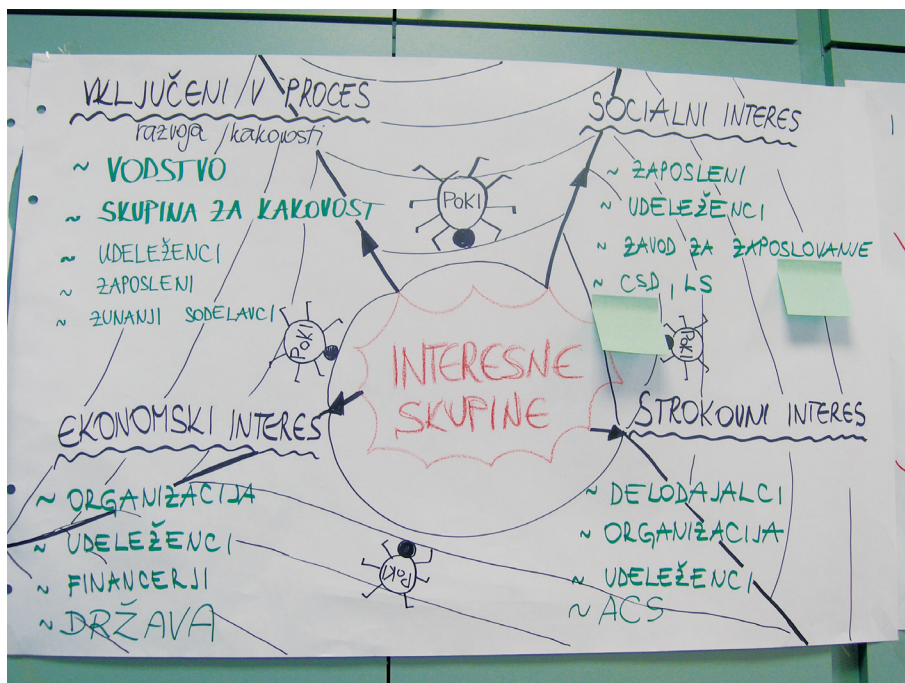 VKLJUČENI /V PROCES
razvoja /kakovosti
~ VODSTVO
~ SKUPINA ZA KAKOVOST
~ UDELEŽENCI
~ ZAPOSLENI
~ ZUNANJI SODELAVCI
SOCIALNI INTERES
~ ZAPOSLENI
~ UDELEŽENCI
~ ZAVOD ZA ZAPOSLOVANJE
~ CSD, LS
POKI
POKI
POKI
INTERESNE
SKUPINE
EKONOMSKI INTERES
~ ORGANIZACIJA
~ UDELEŽENCI
~ FINANCERJI
~ DRŽAVA
STROKOVNI INTERES
~ DELODAJALCI
~ ORGANIZACIJA
~ UDELEŽENCI
~ ACS
POKI